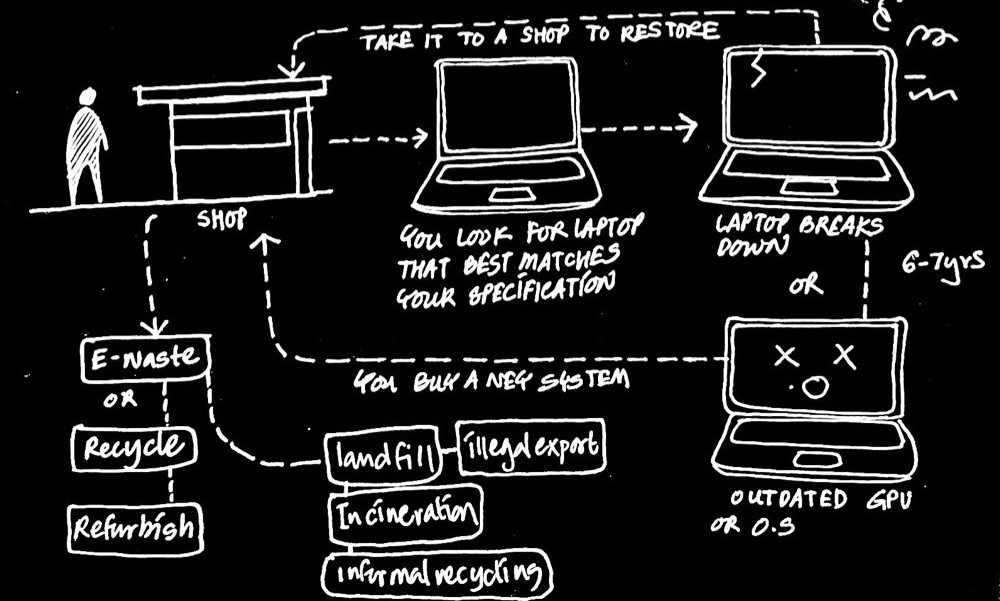 TAKE IT TO A SHOP TO RESTORE
SHOP
YOU LOOK FOR LAPTOP
THAT BEST MATCHES
YOUR SPECIFICATION
LAPTOP BREAKS
DOWN
6-7yrs
OR
YOU BUY A NEW SYSTEM
E-waste
OR
Recycle
Refurbish
landfill
illegal export
Incineration
informal recycling
OUTDATED GPU
OR O.S